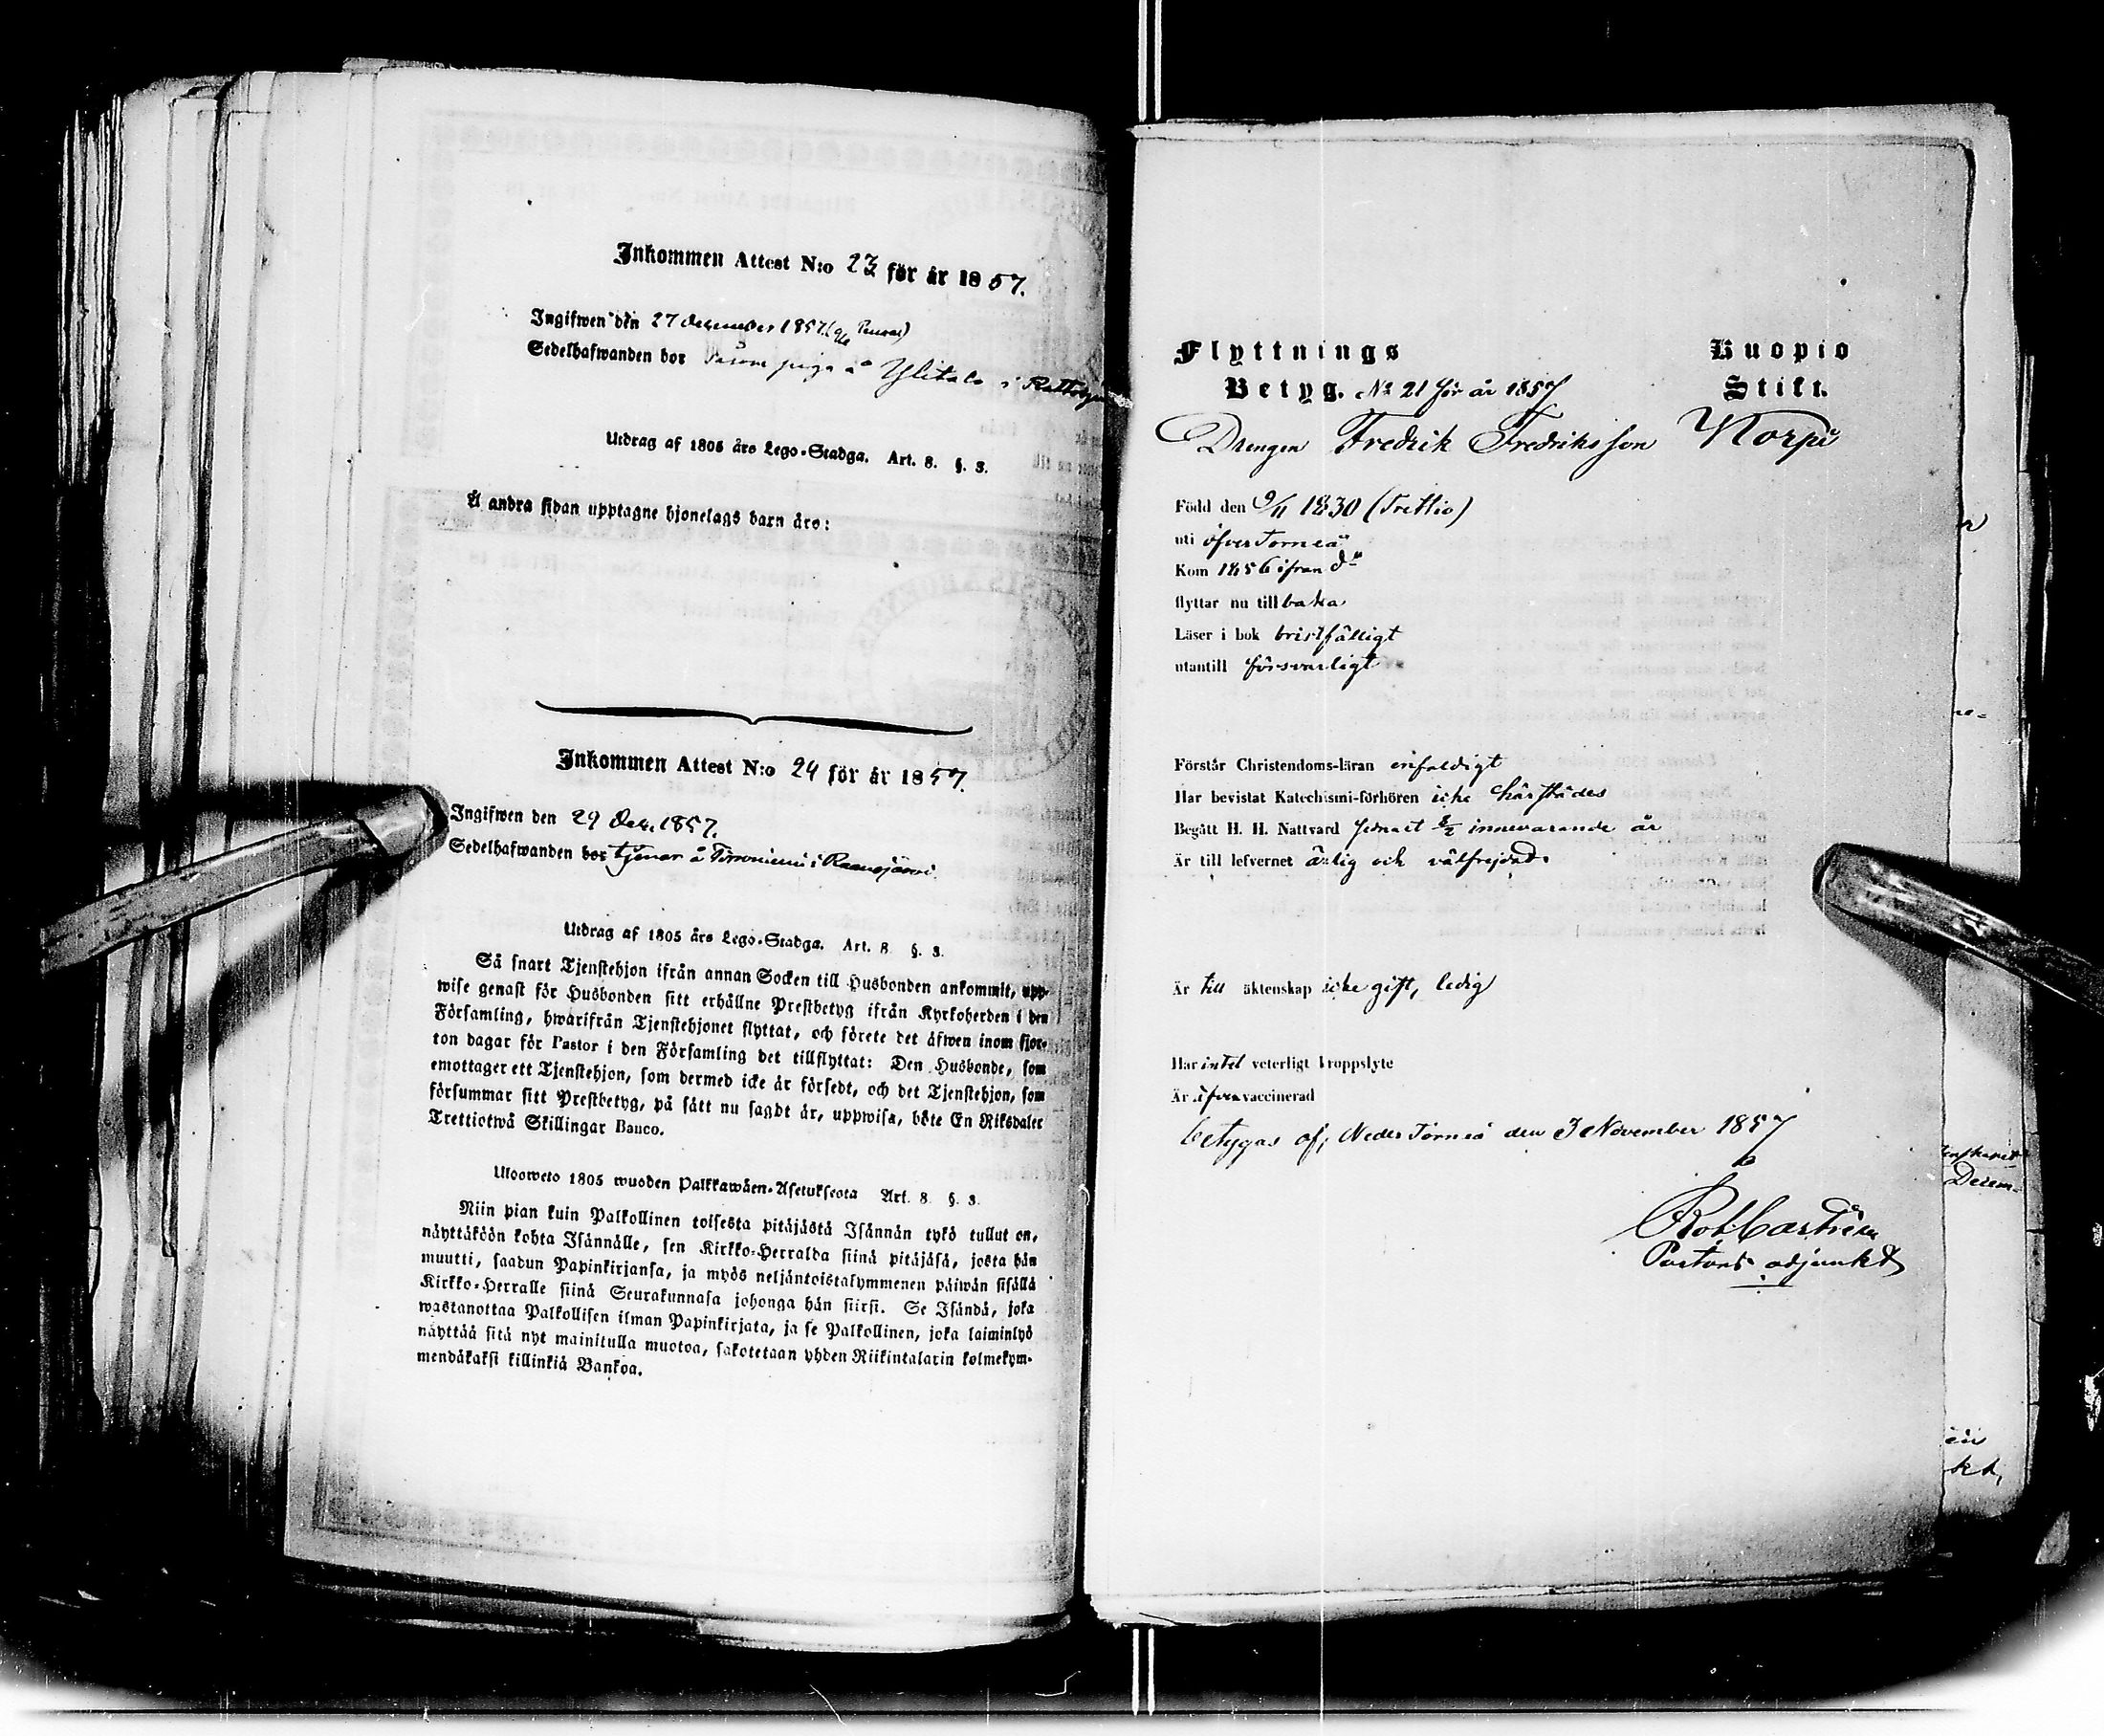 Inkommen Attest N:o 23 för år 1857.
Ingifwen den 27 december 1857.
Sedelhafwanden bor Såsom piga å Ylitalo i
Utdrag af 1805 års Lego-Stadga. Art. 8. §. 3.
Å andra sidan upptagne hjonelags barn äro:
Inkommen Attest N:o 24 för år 1857.
Ingifwen den 29 Dec. 1857.
Sedelhafwanden bor tjenar å Törmöniemi i Raanujärvi.
Utdrag af 1805 års Lego-Stadga. Art. 8 §. 3.
Så snart Tjenstehjon ifrån annan Socken till Husbonden ankommit, upp-
wise genast för Husbonden sitt erhållne Prestbetyg ifrån Kyrkoherden i den
Församling, hwarifrån Tjenstehjonet flyttat, och förete det äfwen inom fjor-
ton dagar för Pastor i den Församling det tillflyttat: Den Husbonde, som
emottager ett Tjenstehjon, som dermed icke är försedt, och det Tjenstehjon, som
försummar sitt Prestbetyg, på sätt nu sagdt är, uppwisa, böte En Riksdaler
Trettiotwå Skillingar Banco.
Uloosweto 1805 wuoden Palkkawäen-Asetuksesta Art. 8 §. 3.
Niin pian kuin Palkollinen toisesta pitäjästä Isännän tykö tullut on,
näyttäköön kohta Isännälle, sen Kirkko-Herralda siinä pitäjäsä, josta hän
muutti, saadun Papinkirjansa, ja myös neljäntoistakymmenen päiwän sisällä
Kirkko-Herralle siinä Seurakunnasa johonga hän siirsi. Se Isändä, joka
wastanottaa Palkollisen ilman Papinkirjata, ja se Palkollinen, joka laiminlyö
näyttää sitä nyt mainitulla muotoa, sakotetaan yhden Riikintalarin kolmekym-
mendäkaksi killinkiä Bankoa.
Flyttnings Kuopio
Betyg. No 21 för år 1857 Stift.
Drengen Fredrik Fredriksson Korpi
Född den 9/11 1830 (Trettio)
uti öfver Torneå
Kom 1856 ifrån do
flyttar nu tillbaka
Läser i bok bristfälligt
utantill försvarligt
Förstår Christendoms-läran enfaldigt
Har bevistat Katechismi-förhören icke härstädes
Begått H. H. Nattvard sednast 8/2 innevarande år
Är till lefvernet ärlig och välfrejdad.
Är till äktenskap icke gift, ledig
Har intet veterligt kroppslyte
Är äfven vaccinerad
betygas af, Neder Torneå den 3 November 1857
Rob. Castrén
Pastors adjunkt
Decem-